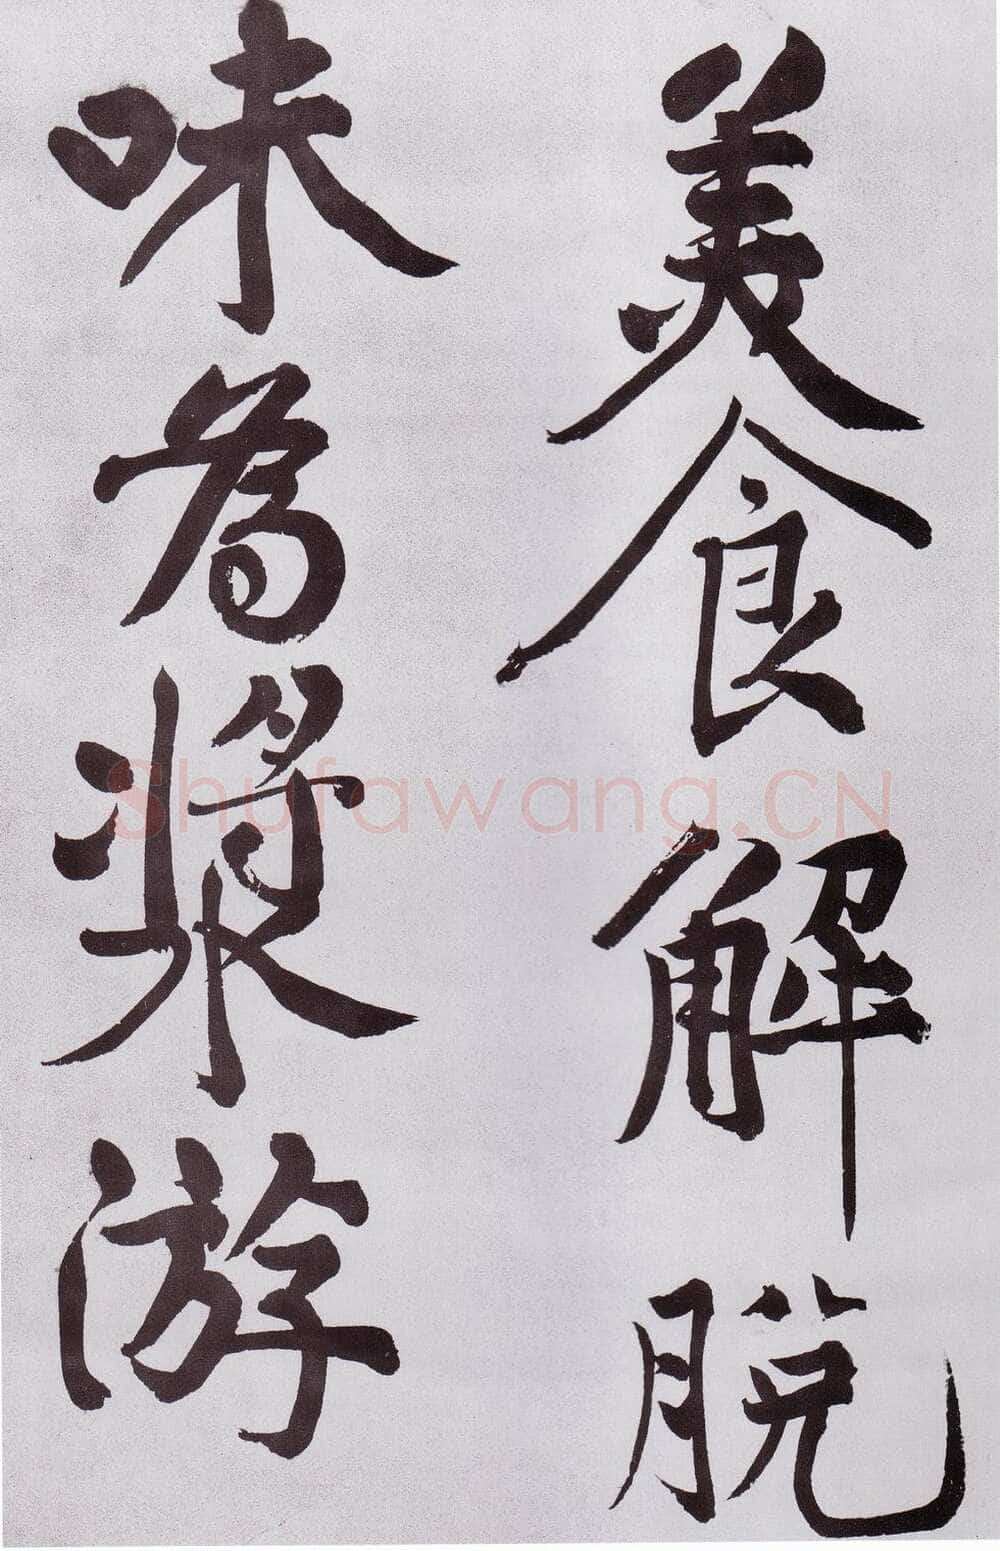 美食解脫
味為漿游
Shufawang.CN